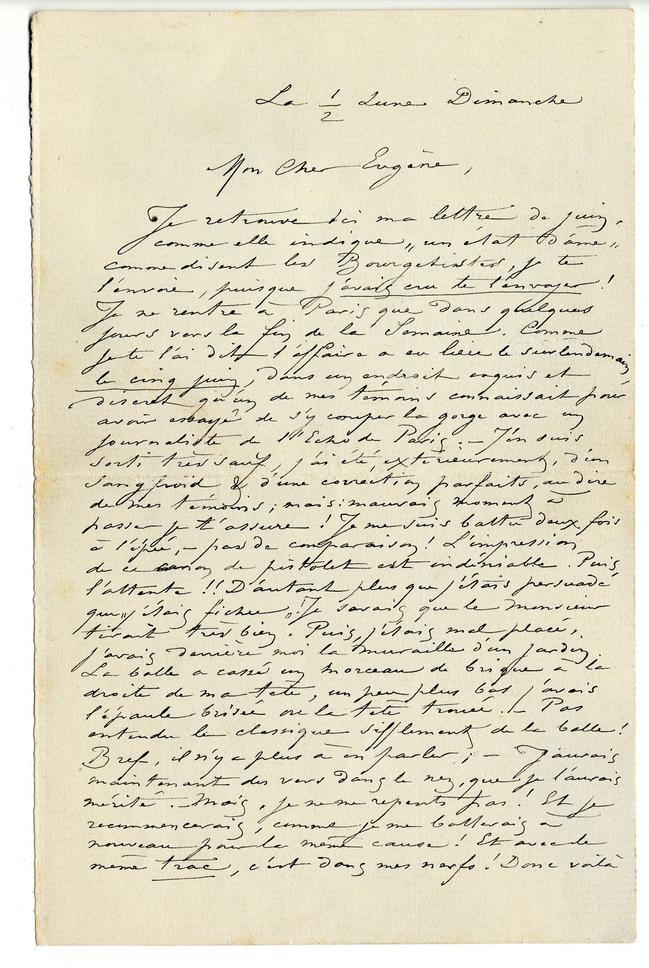 La 1/2 Lune Dimanche
Mon Cher Eugène,
Je retrouve ici ma lettre de juin,
comme elle indique „ un état d'âme „
comme disent les Bourgetistes, je te
l'envoie, puisque j'avais cru te l'envoyer !
Je ne rentre à Paris que dans quelques
jours vers la fin de la Semaine. Comme
je te l'ai dit l'affaire a eu lieu le surlendemain
le cinq juin, dans un endroit exquis et
discret qu'un de mes témoins connaissait pour
avoir essayé de s'y couper la gorge avec un
journaliste de l'Echo de Paris. – J'en suis
sorti très sauf, j'ai été, extérieurement, d'un
sang froid & d'une correction parfaits, au dire
de mes témoins ; mais : mauvais moment à
passer je t'assure ! Je me suis battu deux fois
à l'épée, – pas de comparaison ! L'impression
de ce canon de pistolet est indéniable. Puis
l'attente !! D'autant plus que j'étais persuadé
que „ j'étais fichu „ ! Je savais que le Monsieur
tirait très bien. Puis, j'étais mal placé,
j'avais derrière moi la muraille d'un jardin.
La balle a cassé un morceau de brique à la
droite de ma tête, un peu plus bas j'avais
l'épaule brisée ou la tête trouée. – Pas
entendu le classique sifflement de la balle !
Bref, il n'y a plus à en parler ; – J'aurais
maintenant des vers dans le nez, que je l'aurais
mérité. Mais, je ne me repents pas ! Et je
recommencerais, comme je me batterais à
nouveau pour la même cause ! Et avec le
même trac, c'est dans mes nerfs ! Donc voilà